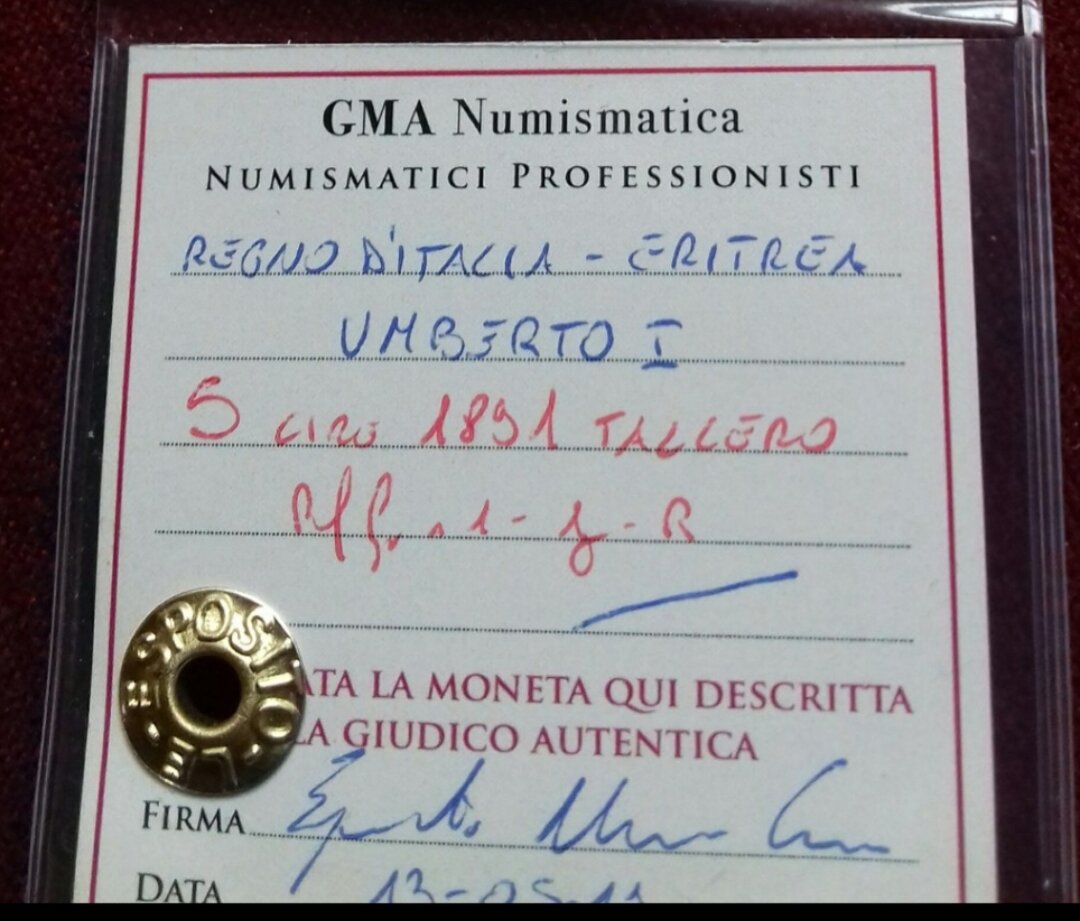 GMA Numismatica
NUMISMATICI PROFESSIONISTI
REGNO D'ITALIA - ERITREA
UMBERTO I
5 LIRE 1891 TALLERO
1 - - R
ESPOSITO
ATA LA MONETA QUI DESCRITTA
LA GIUDICO AUTENTICA
FIRMA
DATA 13-05-11